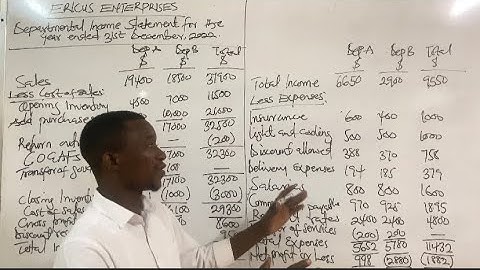 ERICUS ENTERPRISES
Departmental Income Statement for the
year ended 31st December, 2022.
Dep A Dep B Total
$ $ $
Sales 19400 18500 37900
Less Cost of sales:
Opening Inventory 4500 7000 11500
Add purchases 10000 21000
17000 32500
Return (200)
COGAFS 32300
Transfer of goods
17100 32300
Closing Inventory (1000) (3000)
Cost of Sales 29300
Gross profit 8600
Discount
Total In
Dep A Dep B Total
$ $ $
Total Income 6650 2900 9550
Less Expenses:
Insurance 600 400 1000
Light and Cooling 500 500 1000
Discount allowed 388 370 758
Delivery Expenses 194 185 379
Salaries 800 800 1600
payable 970 925 1895
Rates 2400 2400 4800
of services (200) 200 -
Total Expenses 5652 5780 11432
Net profit or Loss 998 (2880) (1882)